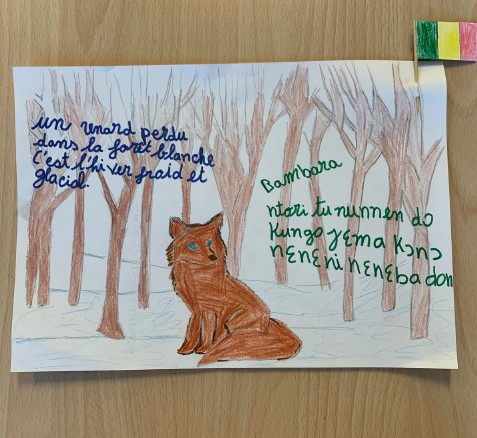 un renard perdu
dans la forêt blanche
C'est l'hiver froid et
glacial.
Bambara
ntori tununnen do
Kungo jɛma kɔnɔ
nɛnɛ ni nɛnɛba don